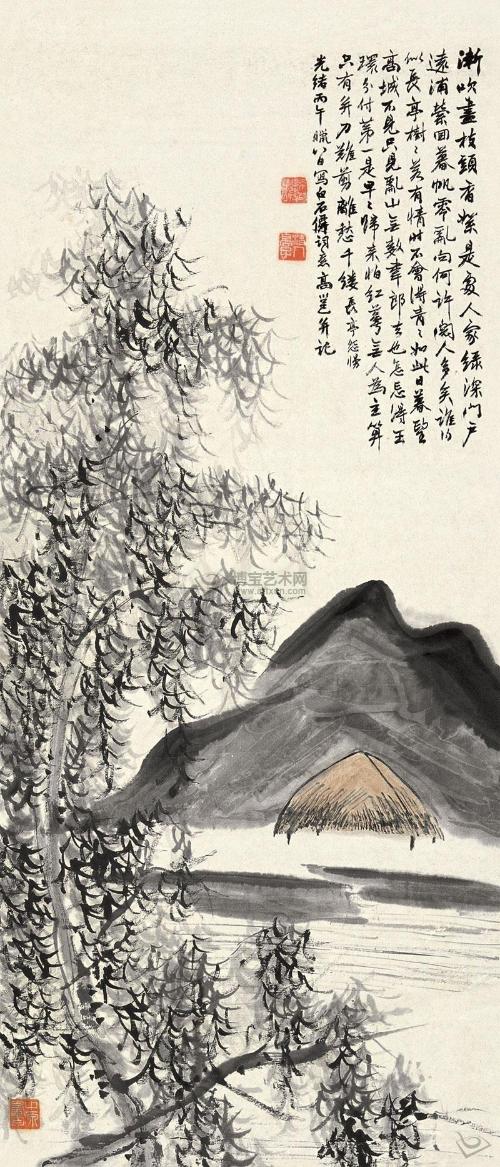 漸吹盡枝頭香絮是處人家綠深門戶
遠浦縈回暮帆零亂向何許閱人多矣誰得
似長亭樹〻若有情時不會得青〻如此日暮望
高城不見只見亂山无數韋郎去也怎忘得玉
環分付第一是早〻歸來怕紅萼无人為主算
只有并刀難剪離愁千縷 長亭怨慢
光緒丙午臘八日寫白石僊詞意高邕并記
博宝艺术网
www.artxun.com